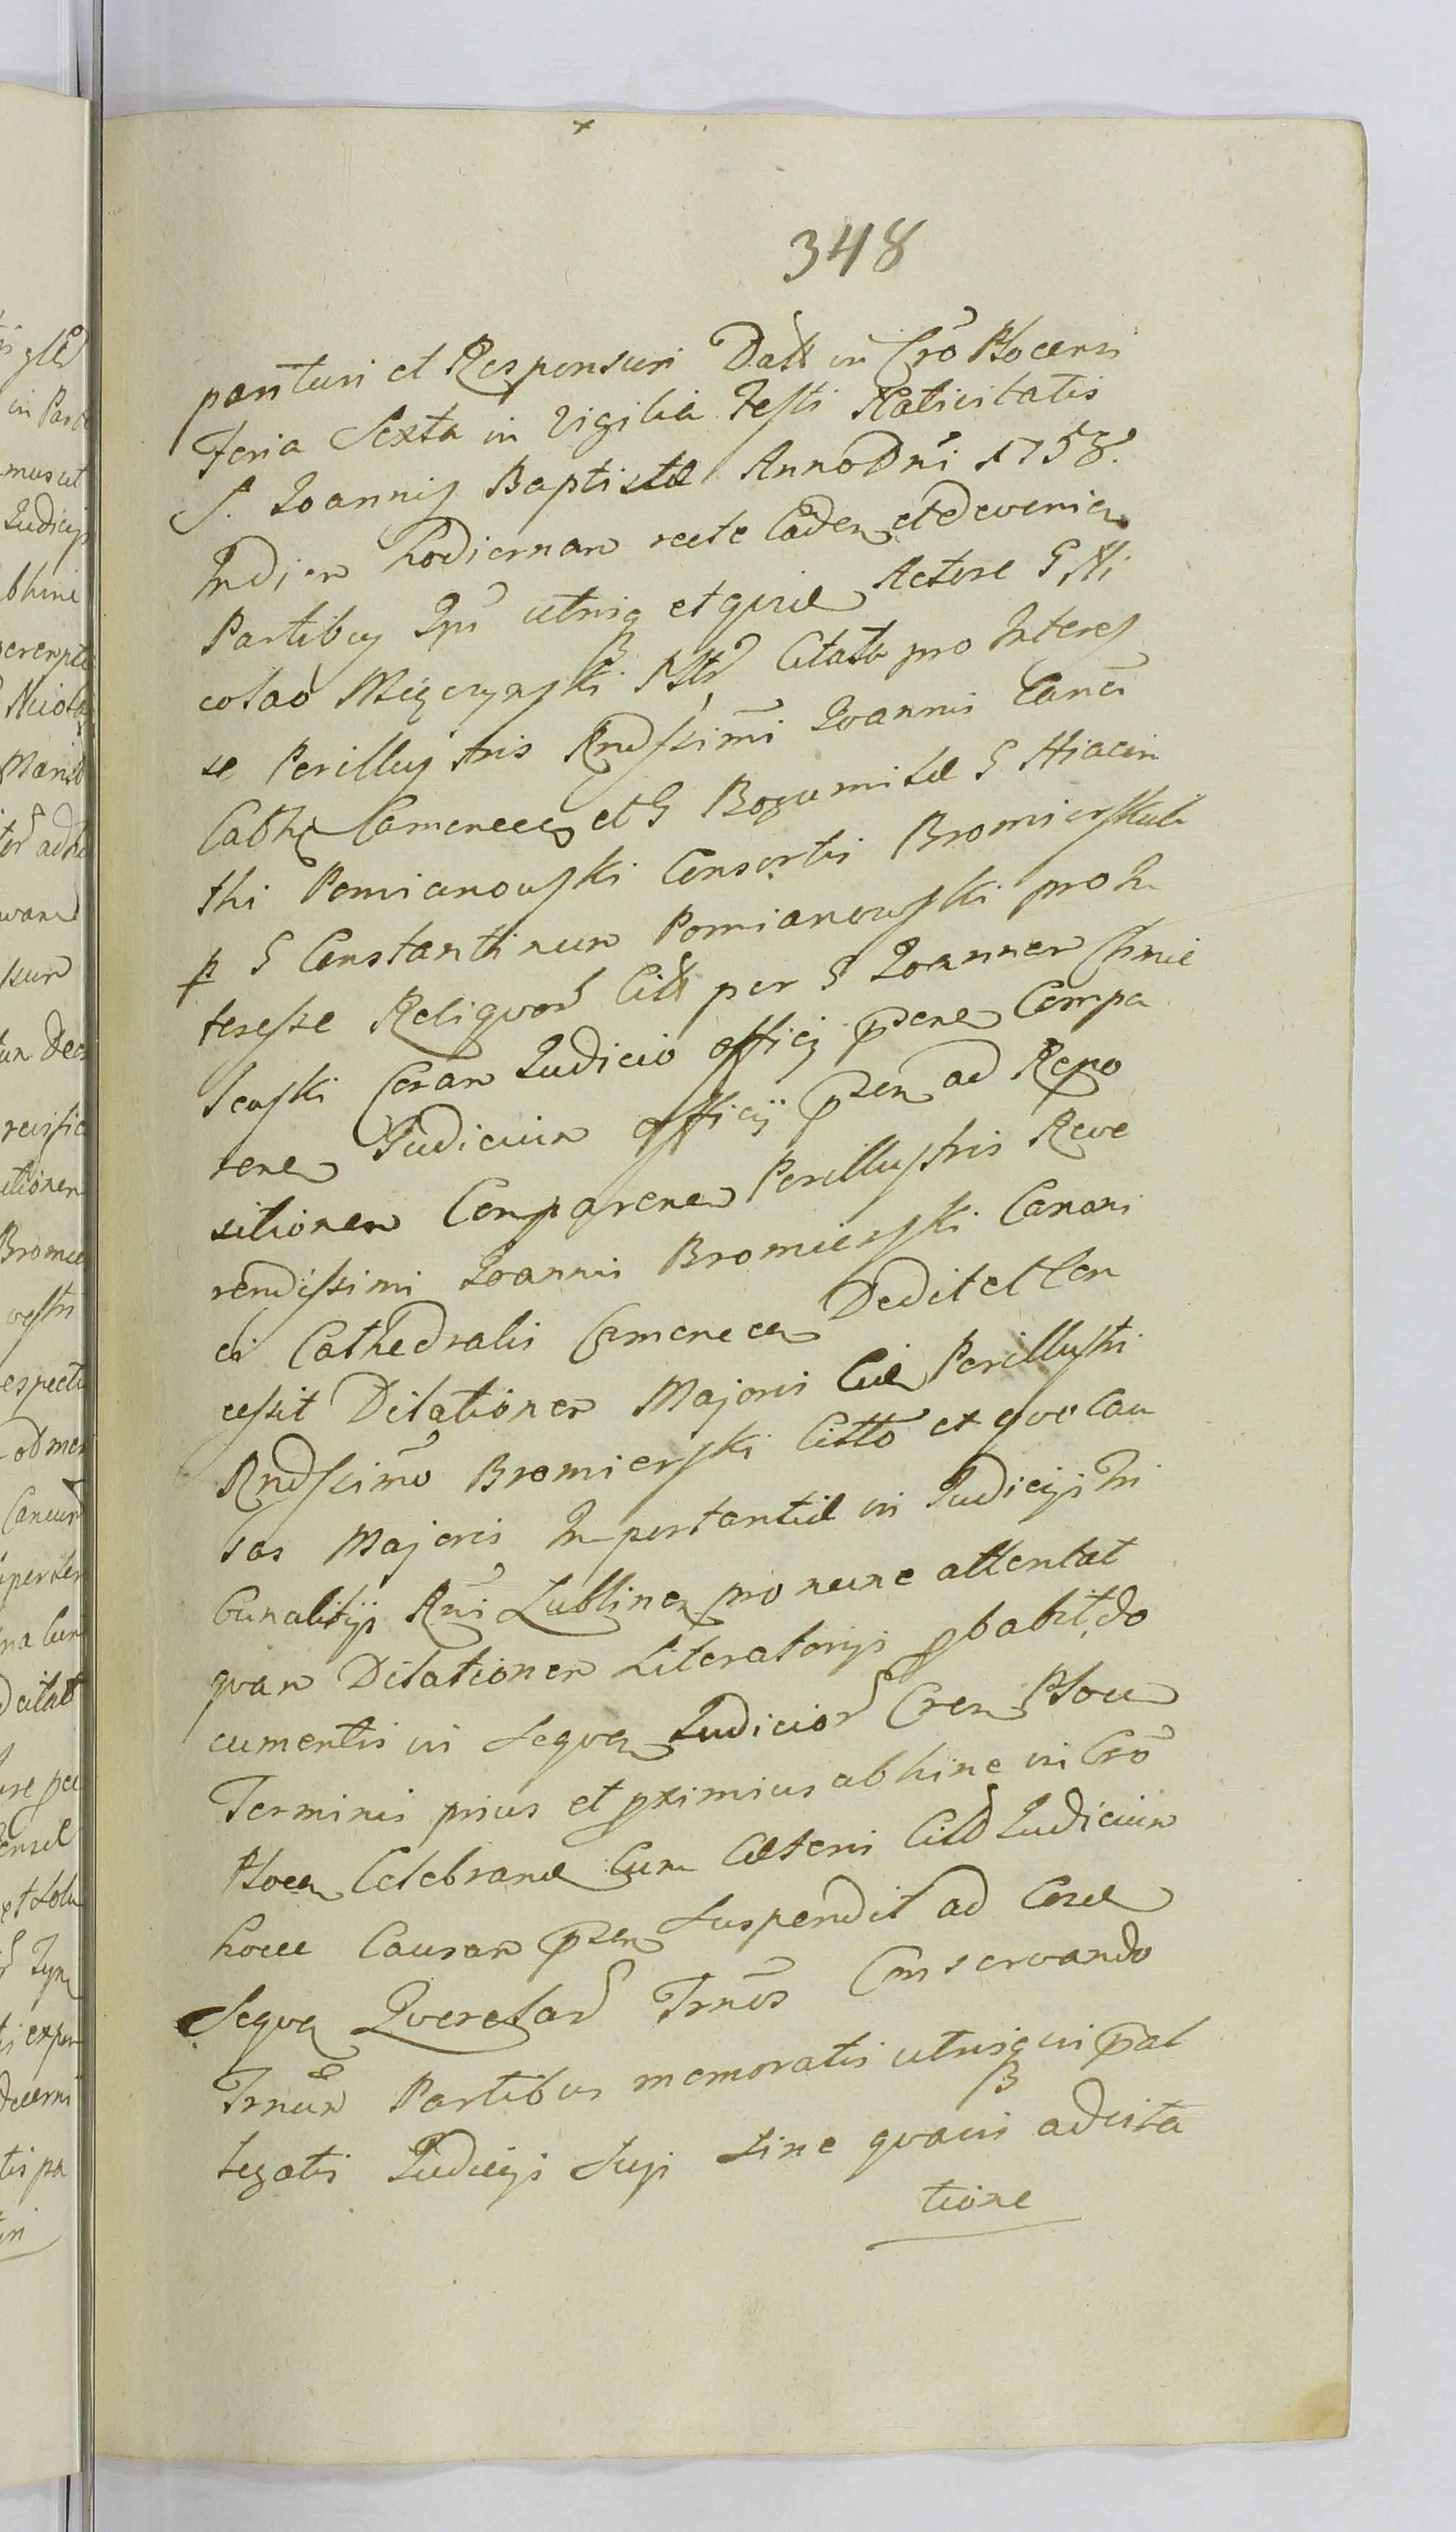 348
parituri et Responsuri Datt in Cro Plocensi
Feria Sexta in Vigilia Festi Nativitatis
S. Joannis Baptistæ Anno Dni 1758.
In diem hodiernam recte Caden et Devenien
Partibus Ipsis utrisq et quidē Actore G Ni
colao Mięczynski Citata pro Interes
se Perillustris Rndssimi Joannis Canci
Cathe Camenecen et G Bogumilæ G Hiacin
thi Pomianowski Consortis Bromierskich
p G Constantinum Pomianowski pro In
teresse Reliquor Citt per G Joannem Chmie
lewski Coram Judicio officy psene Compa
rene Judicium officij psen ad Repo
sitionem Comparene Perillustris Reve
rendissimi Joannis Bromierski Canoni
ci Cathedralis Camenecen Dedit et Con
cessit Dilationem Majoris Cui Perillustri
Rndssimo Bromierski Citto ex quo Cau
sas Majoris Importantiæ in Judicijs Tri
bunalitijs Rni Lublinen pro nunc attentat
quam Dilationem Literatorijs pbabit, do
cumentis in Sequen Judicior Cren Plocen
Terminis prius et pximius abhinc in Cro
Plocen Celebrand Cum Cæteris Citt Judicium
hocce Causam psen Suspendit ad Cosd
Sequen Querelar Trnos Conservando
Trnum Partibus memoratis utrisq in præal
legatis Judicijs Suis sine quavis adcita
tione